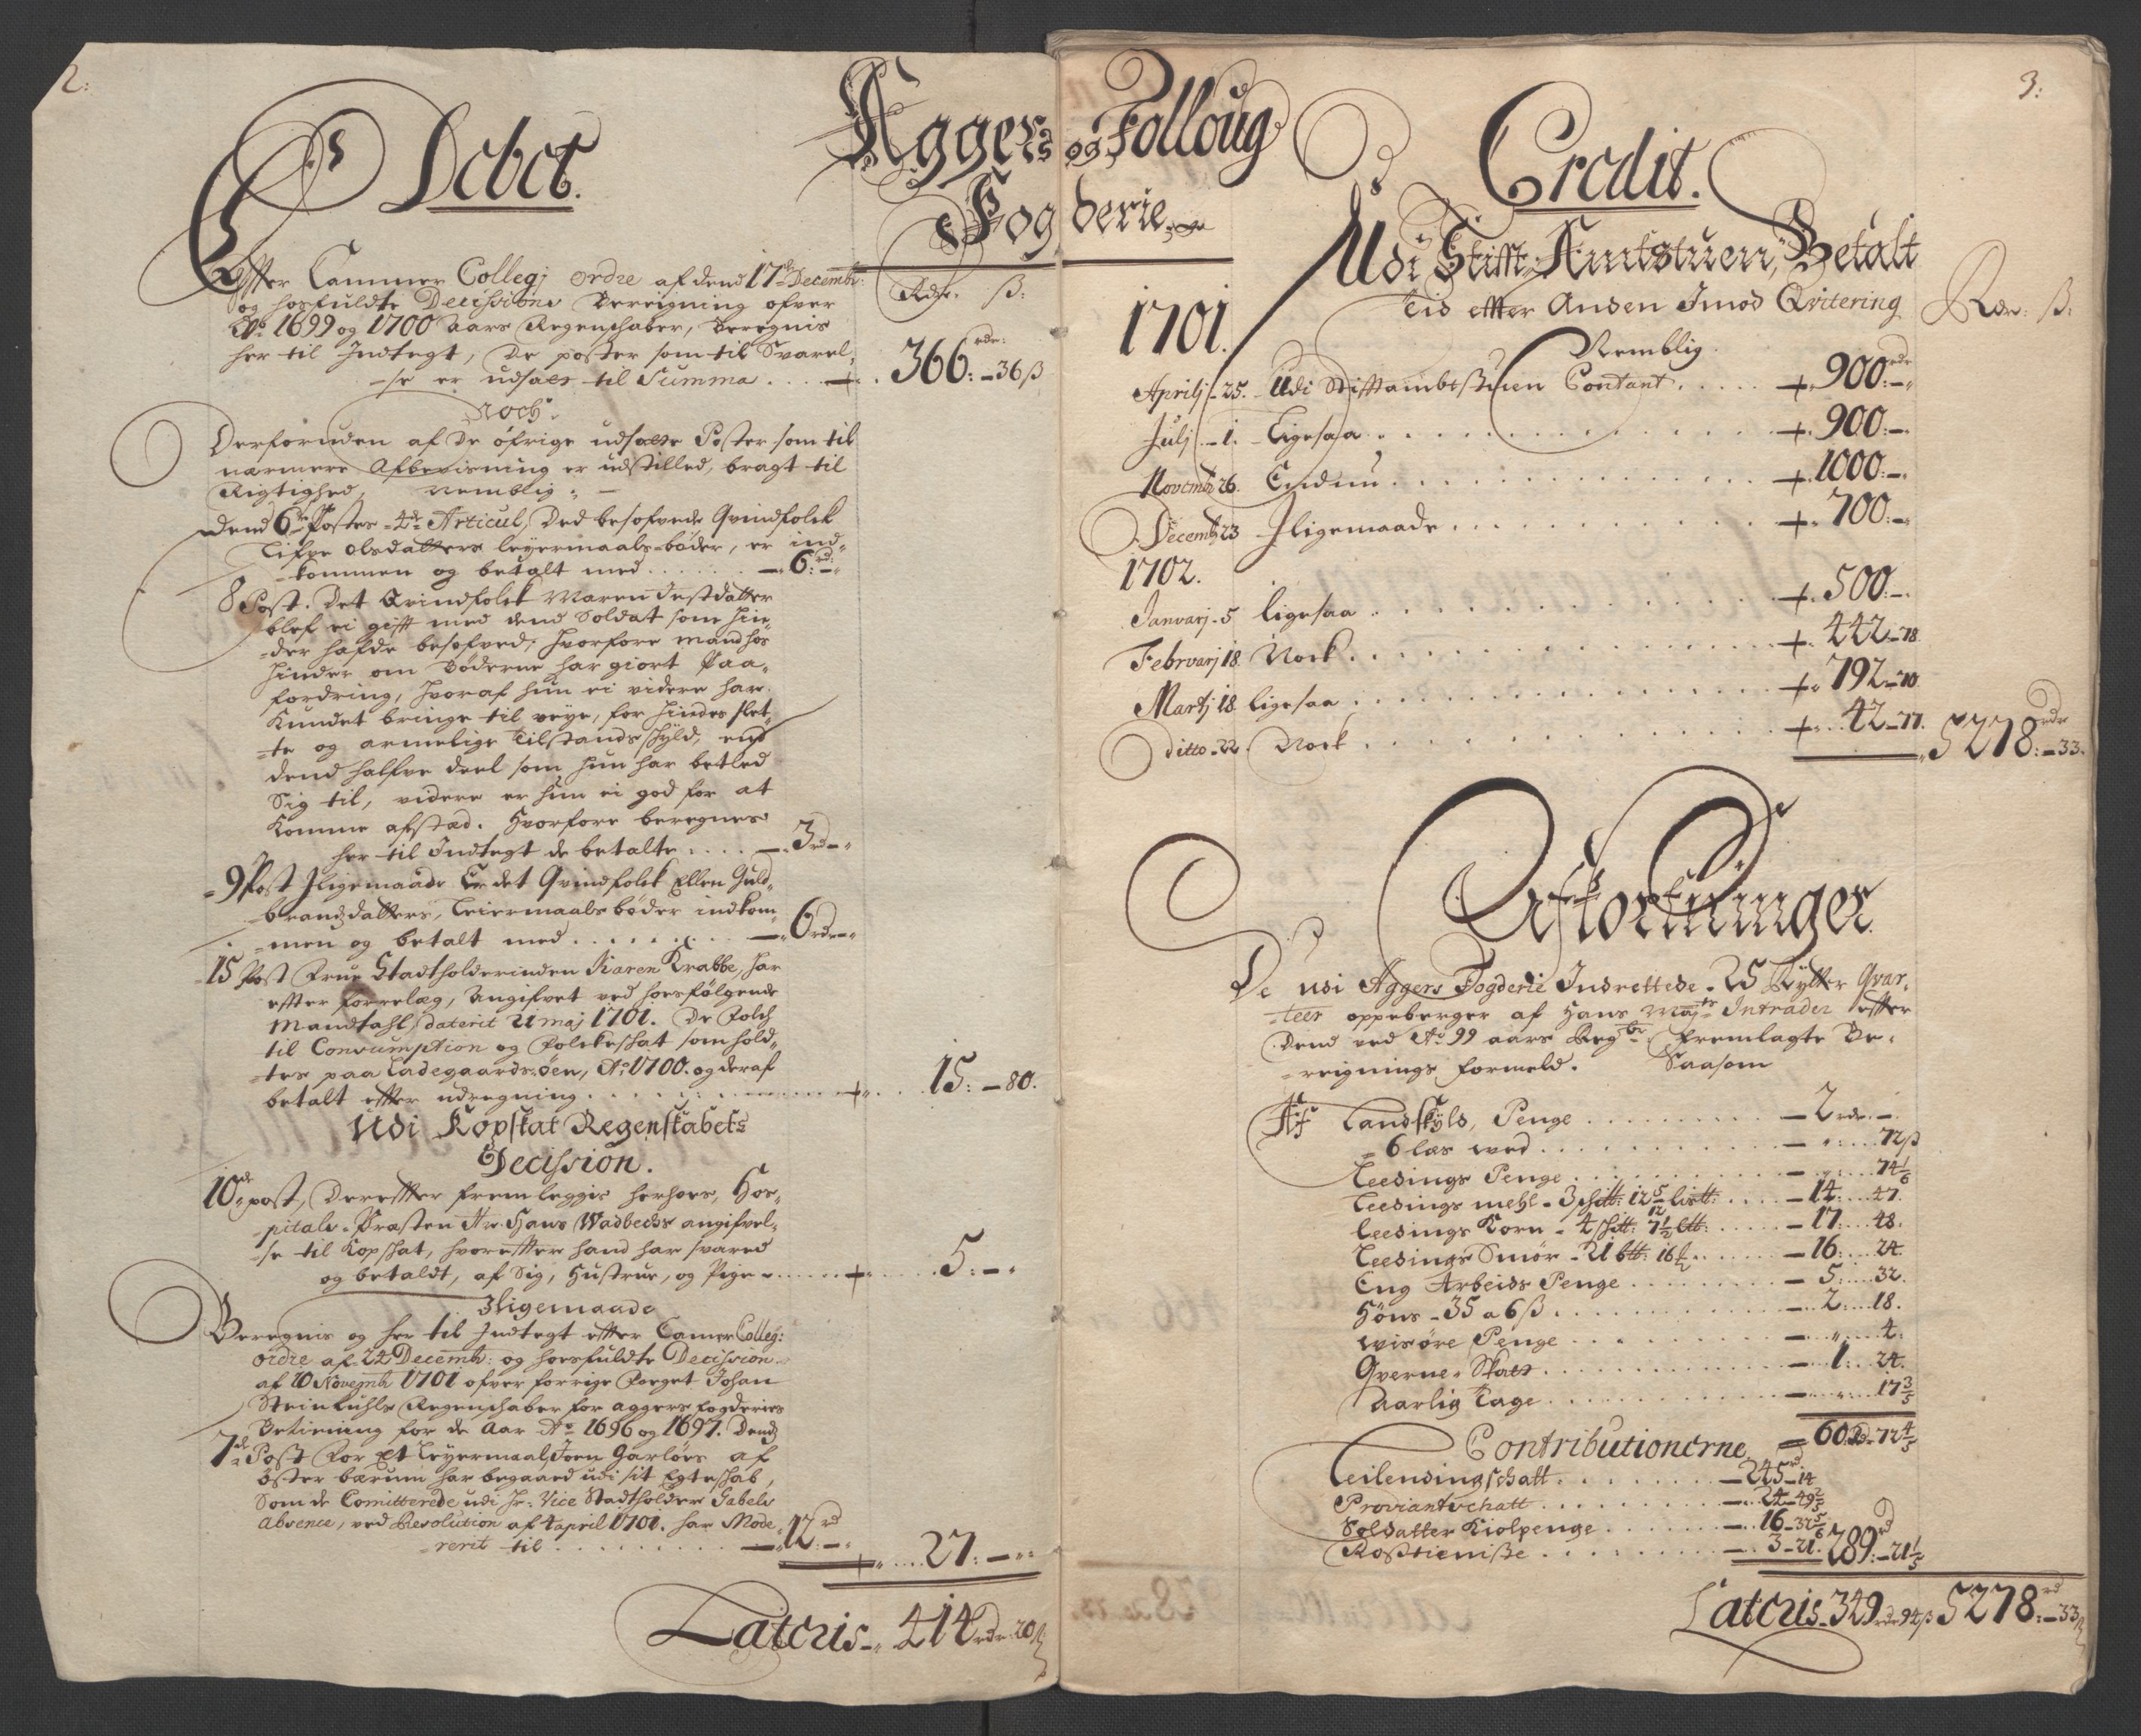 2:
Debet.
Aggers og Folloug
Fogderie
Effter Cammer Collegj ordre af dend 17 Decembr:
og hosfuldte Decissions Bereigning ofver
Ao 1699 og 1700 Aars Regenschaber, Beregnis
her til Indtegt, De poster som til Svarel-
se er udsatt til Summa .... 366: rdr: - 36 ß
Rdr. ß:
Noch
Derforuden af De öfrige udsatte Poster som til
nærmere Afbevisning er udstilled, bragt til
Rigtighed, Nemblig:
Dend 6te Postes 4de Articul, Ded besofvede Qvindfolck
Olsdatters leyermaals-bøder, er ind-
kommen og betalt med ...... 6: rd -
8 Post. Det Qvindfolck Maren datter
blef ei gifft med dend Soldat som hin-
der hafde besofved, hvorfore mand hos
hinder om Bøderne har giort Paa-
fordring, hvoraf hun ei videre har
Kundet bringe til veye, for hindes slet-
te og armelige Tilstands skyld, end
dend halfve deel som hun har betled
Sig til, videre er hun ei god for at
Komme afstæd. Hvorfore beregnes
her til Indtegt de betalte .... 3 rd -
9 Post Iligemaade Er det Qvindfolck Ellen Guld-
brandzdatters, Leiermaals bøder indkom-
men og betalt med ....... 6 rdr -
15 Post Frue Stadtholderinden Karen Krabbe, har
effter forrelæg, Angifvet ved hosfølgende
Mandtahl, daterit 21 maj 1701. De Folch
til Consumption og Folckeskat som hold-
tes paa Ladegaards-øen, Ao 1700. og deraf
betalt effter udregning ....... 15: - 80.
Udi Kopskat Regenskabets
Decission.
10de post, Dereffter fremleggis herhoes, Hos-
pitals-Præsten Hr. Hans Wadbechs angifvel-
se til Kopskat, hvoreffter hand har svared
og betaldt, af Sig, Hustrue, og Pige ...... 5: - "
Iligemaade
Beregnis og her til Indtegt effter Camer Colleg:
ordre af 24 Decembr: og hosfuldte Decission
af 10 Novembr 1701 ofver forrige Foeget Johan
Steinkuhls Regenschaber for Aggers fogderies
Betiening for de Aar Ao 1696 og 1697. Dend
7de Post For Et Leyermaal Joen Garløes af
Øster bærum har begaaed udi sit Egteskab,
Som de Comitterede udi Hr: Vice Stadtholder Gabels
absence, ved Resolution af 4 april 1701. har Mode-
rerit til ......... 12: rd - "
27: - "
Lateris - 414 rdr 20 ß
3:
Credit.
Udi Stifft Amtstuen, Betalt
Tid effter Anden Imod Qvitering
Nemblig.
Rdr: ß:
1701.
Aprilj - 25. Udi Stifftambtstuen Contant ..... 900: rdr -
Julj - 1. Ligesaa ........ 900: -
Novembr 26. Endnu ........ 1000: -
Decembr 23 Iligemaade ........ 700: -
1702.
Januarj - 5 ligesaa ........ 500: -
Februarj 18. Nock ........ 442 - 78
Martj 18 ligesaa ........ 792 - 70
ditto - 22. Nock ........ 42 - 77. 5278: rdr - 33.
Afkortninger
De udi Aggers Fogderie Indrettede - 25 Rytter Qvar-
teer oppeberger af Hans Maj:ts Intrader effter
dend ved Ao 99 aars Regskr: fremlagte Be-
reignings formeld. Saasom
Af Landskyld, Penge ........ 2 rdr -
6 læs wed ........ " 72 ß
Leedings Penge ........ " 74 1/6
Leedings mehl - 3 schtt: 12 5/12 listt: .... 14: 47.
leedings Korn - 4 schtt: 7 1/2 ltt: ..... 17: 48.
Leedings Smør - 21 btt: 16 1/2 ..... 16: 24.
Eng Arbeids Penge ........ 5: 32.
Höns - 35 a 6 ß ........ 2: 18.
wisöre Penge ........ " 4.
Qverne-Skatt ........ 1: 24.
Aarlig Tage ........ " 17 3/5
60 rd - 72 4/5
Contributionerne
Leilendingschatt ....... 245 rd - 14
Proviantschatt ....... 24 - 49 2/5
Soldatter Kiolpenge ...... 16 - 32 5/6
Rosztieniste ........ 3 - 21. 289: rd - 21 1/5
Lateris - 349 rdr 94 ß 5278: rd - 33 ß